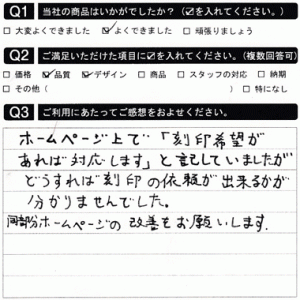 Q1 当社の商品はいかがでしたか？（☑を入れてください。）
□ 大変よくできました ☑ よくできました □ 頑張りましょう
Q2 ご満足いただけた項目に☑を入れてください。（複数回答可）
□ 価格 ☑ 品質 ☑ デザイン □ 商品 □ スタッフの対応 □ 納期
□ その他（ ） □ 特になし
Q3 ご利用にあたってご感想をおよせください。
ホームページ上で「刻印希望が
あれば対応します」と記していましたが
どうすれば刻印の依頼が出来るかが
分かりませんでした。
同部分ホームページの改善をお願いします。